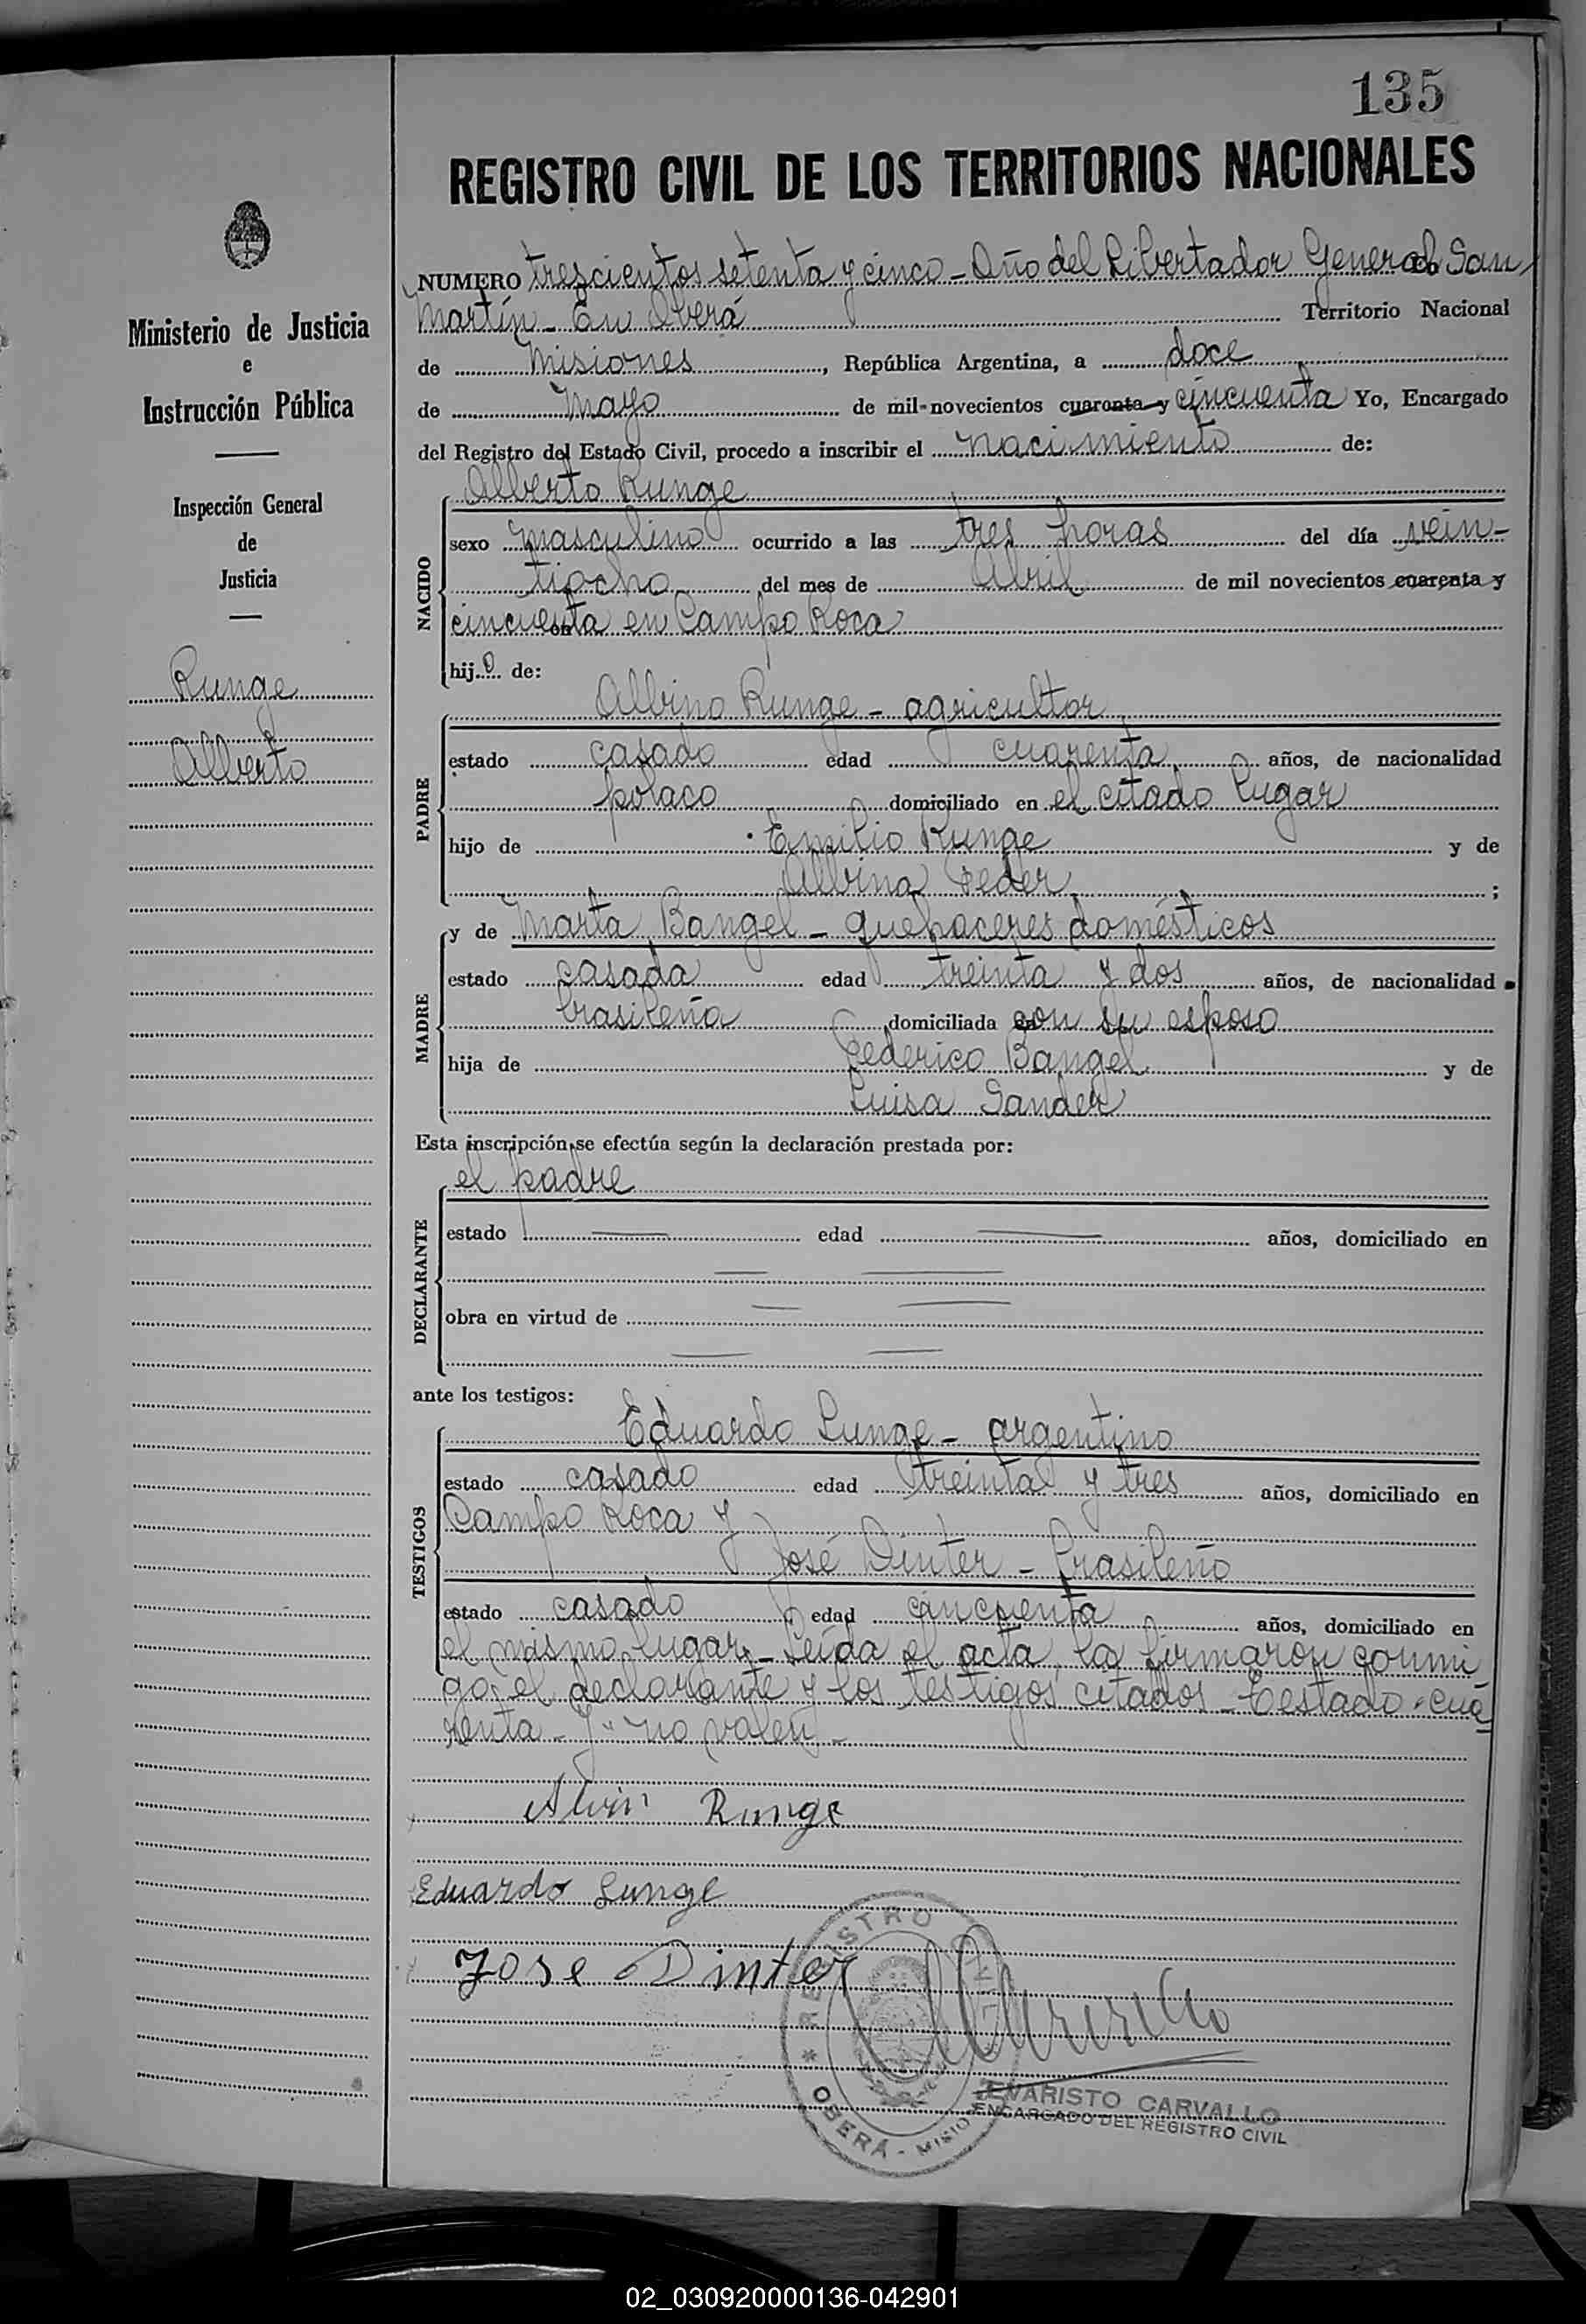 135
REGISTRO CIVIL DE LOS TERRITORIOS NACIONALES
Ministerio de Justicia
e
Instrucción Pública
Inspección General
de
Justicia
Runge
Alberto
NUMERO trescientos setenta y cinco - Año del Libertador General San
Martín - En Oberá Territorio Nacional
de Misiones, República Argentina, a doce
de Mayo de mil novecientos cuarenta y cincuenta Yo, Encargado
del Registro del Estado Civil, procedo a inscribir el nacimiento de:
NACIDO
Alberto Runge
sexo masculino ocurrido a las tres horas del día vein-
tiocho del mes de Abril de mil novecientos cuarenta y
cincuenta en Campo Roca
hijo de:
PADRE
Albino Runge - agricultor
estado casado edad cuarenta años, de nacionalidad
polaco domiciliado en el citado lugar
hijo de Emilio Runge y de
Albina ;
MADRE
y de Marta Bangel - quehaceres domésticos
estado casada edad treinta y dos años, de nacionalidad
brasileña domiciliada con su esposo
hija de Federico Bangel y de
Luisa Sander
Esta inscripción se efectúa según la declaración prestada por:
DECLARANTE
el padre
estado edad años, domiciliado en
obra en virtud de
ante los testigos:
TESTIGOS
Eduardo Lunge - argentino
estado casado edad treinta y tres años, domiciliado en
Campo Roca y
José Dinter - brasileño
estado casado edad cincuenta años, domiciliado en
el mismo lugar - Leída el acta, la firmaron conmi
go, el declarante y los testigos citados - Testado "cua
renta - y" no valen -
Alvin Runge
Eduardo Lunge
Jose Dinter
REGISTRO CIVIL
* OBERÁ - MISIO
EVARISTO CARVALLO
ENCARGADO DEL REGISTRO CIVIL
02_030920000136-042901